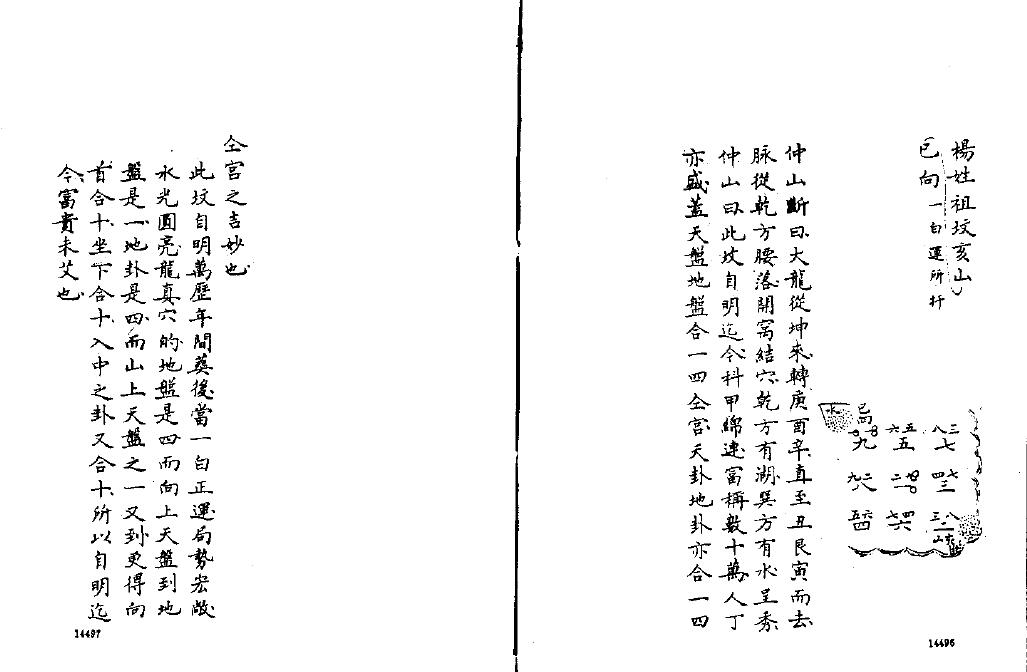 楊姓祖坟亥山
巳向一白運所扦
仲山斷曰大龍從坤來轉庚酉辛直至丑艮寅而去
脉從乾方腰落開窩結穴乾方有湖巽方有水呈秀
仲山曰此坟自明迄今科甲綿連富稱數十萬人丁
亦盛盖天盤地盤合一四仝宮天卦地卦亦合一四
水 巳向
三八七
五六五
九
七四三
二
九
八三一
四七六
14496
仝宮之吉妙也
此坟自明萬歷年間葬後當一白正運局勢宏敞
水光圓亮龍真穴的地盤是四而向上天盤到地
盤是一地卦是四而山上天盤之一又到更得向
首合十坐下合十入中之卦又合十所以自明迄
今富貴未艾也
14497